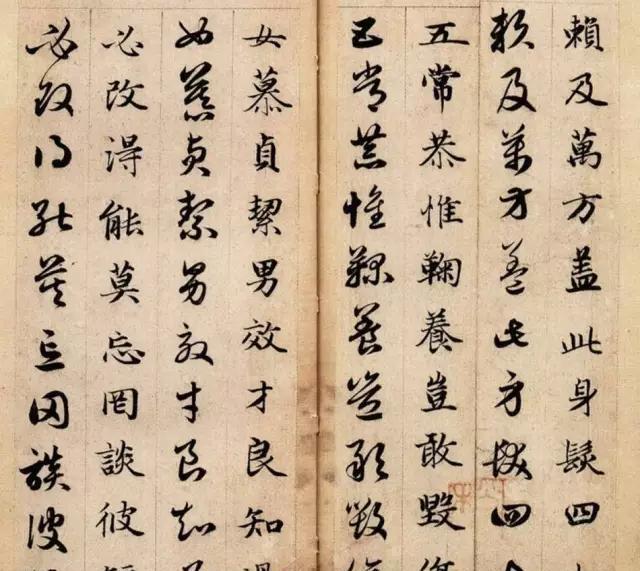 賴及萬方盖此身髮四
賴及萬方盖此身髮四
五常恭惟鞠養豈敢毀
五常恭惟鞠養豈敢毀
女慕貞絜男效才良知
女慕貞絜男效才良知
必改得能莫忘罔談彼
必改得能莫忘罔談彼